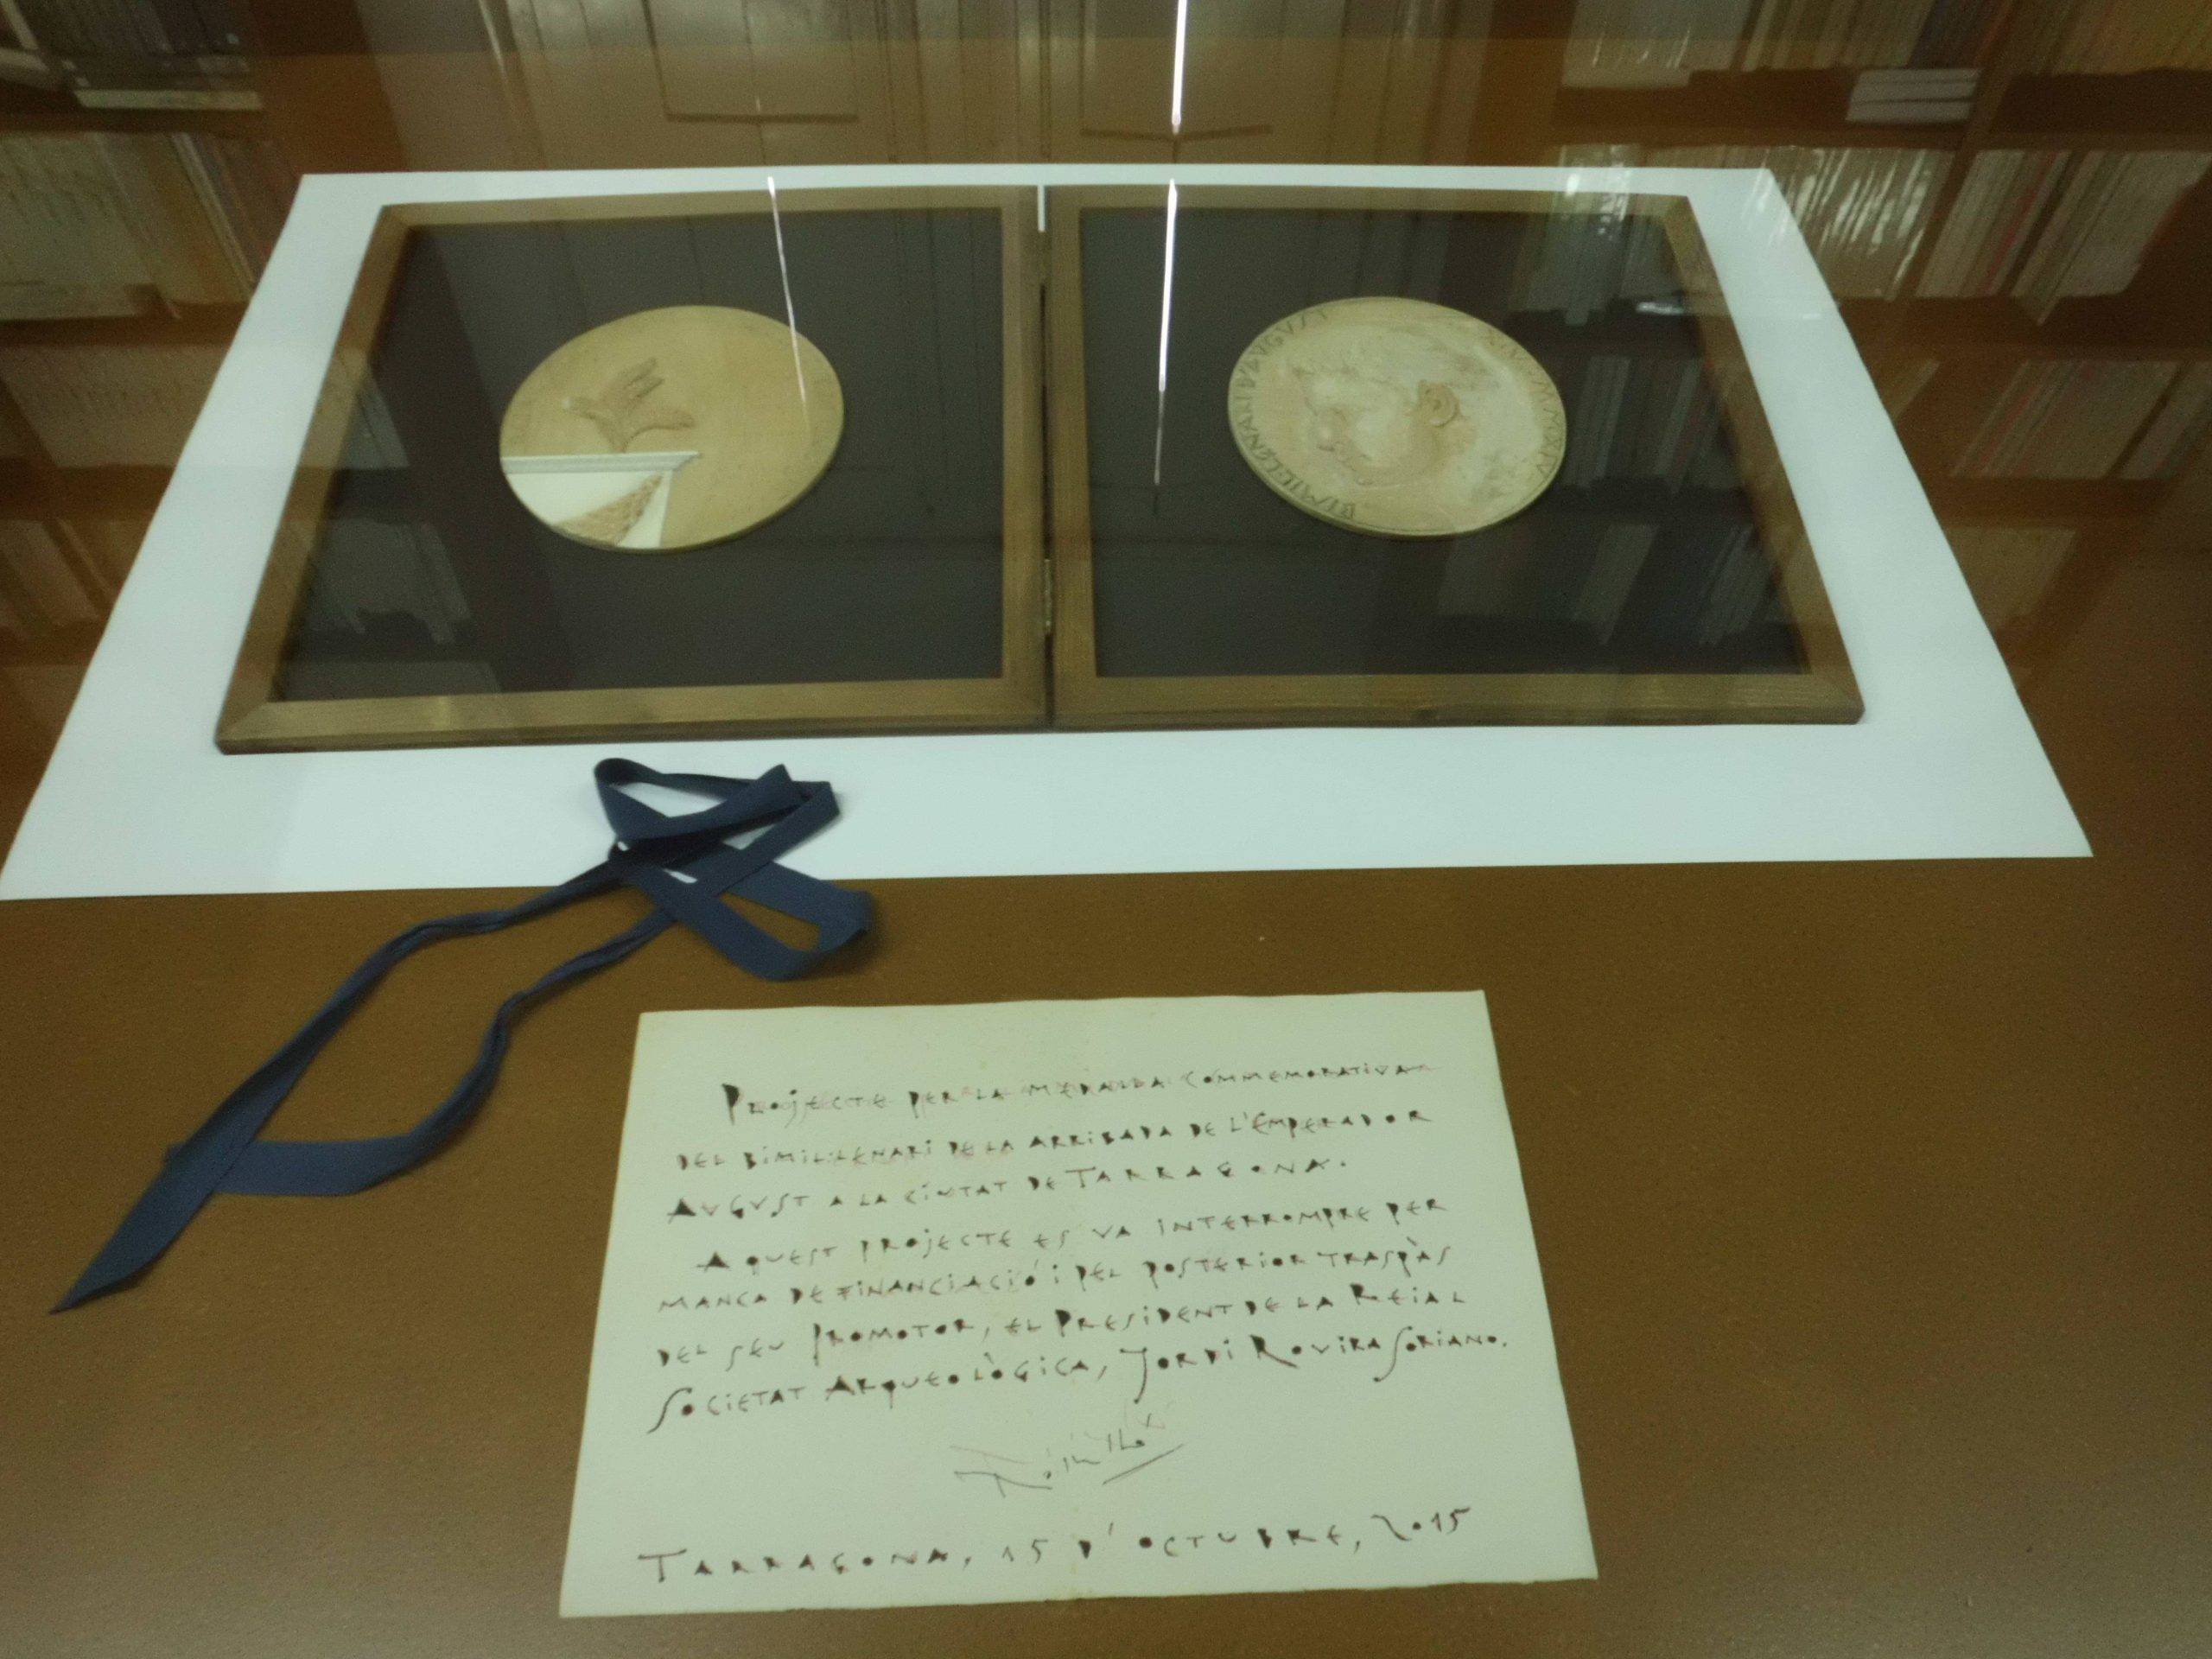 BIMIL·LENARI AUGUST
Projecte per la medalla commemorativa
del bimil·lenari de la arribada de l'Emperador
Avgvst a la ciutat de Tarragona.
Aquest projecte es va interrompre per
manca de financiació i pel posterior traspàs
del seu Promotor, el President de la Reial
Societat Arqueològica, Jordi Rovira Soriano.
Tarragona, 15 d'octubre, 2015